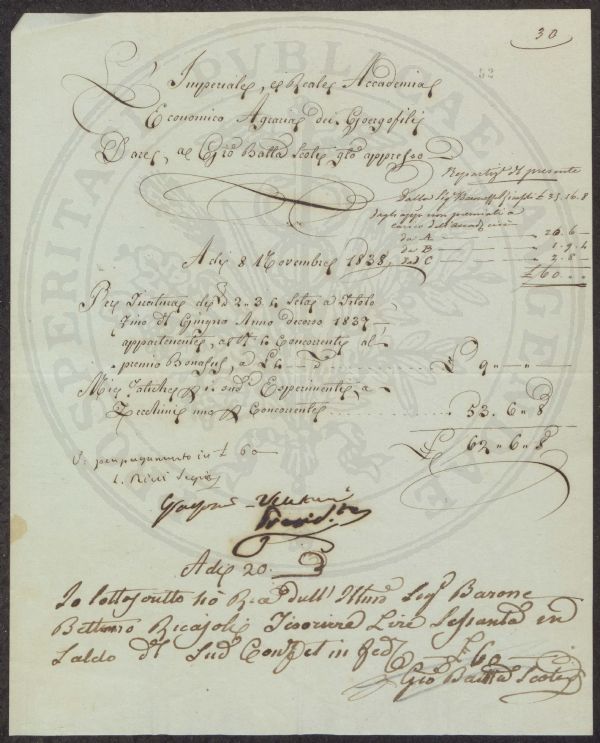 30
52
Imperiale, e Reale Accademia
Economico Agraria dei Georgofili
Dare, a Gio Batta Scoti qto appresso
Repartiz. del presente
Dalla Sig. £ 35.16.8
dagli aggi non premiati a
carico dell'Accademia
da A 20.6
da B 1.9.4
da C 2.8
£ 60
Adi 8 Novembre 1838
Per Tiratura di 2..3 Seta a Titolo
Fino del Giugno Anno decorso 1837
appartenente, a 4 Concorrenti al
premio Bonafus, a £ 9
Mie Fatiche p i sud Esperimenti, a
Zecchini uno p Concorrente 53.6.8
£ 62.6.8
V. per pagamento in £ 60
L. Ricci
Presid.te
Adi 20
Io sottoscritto hò Rice dall' Illmo Sigr Barone
Bettino Ricasoli Tesoriere Lire Sessanta in
Saldo del Sud Conto, et in fede £ 60
Gio Batta Scoti
PUBLICAE